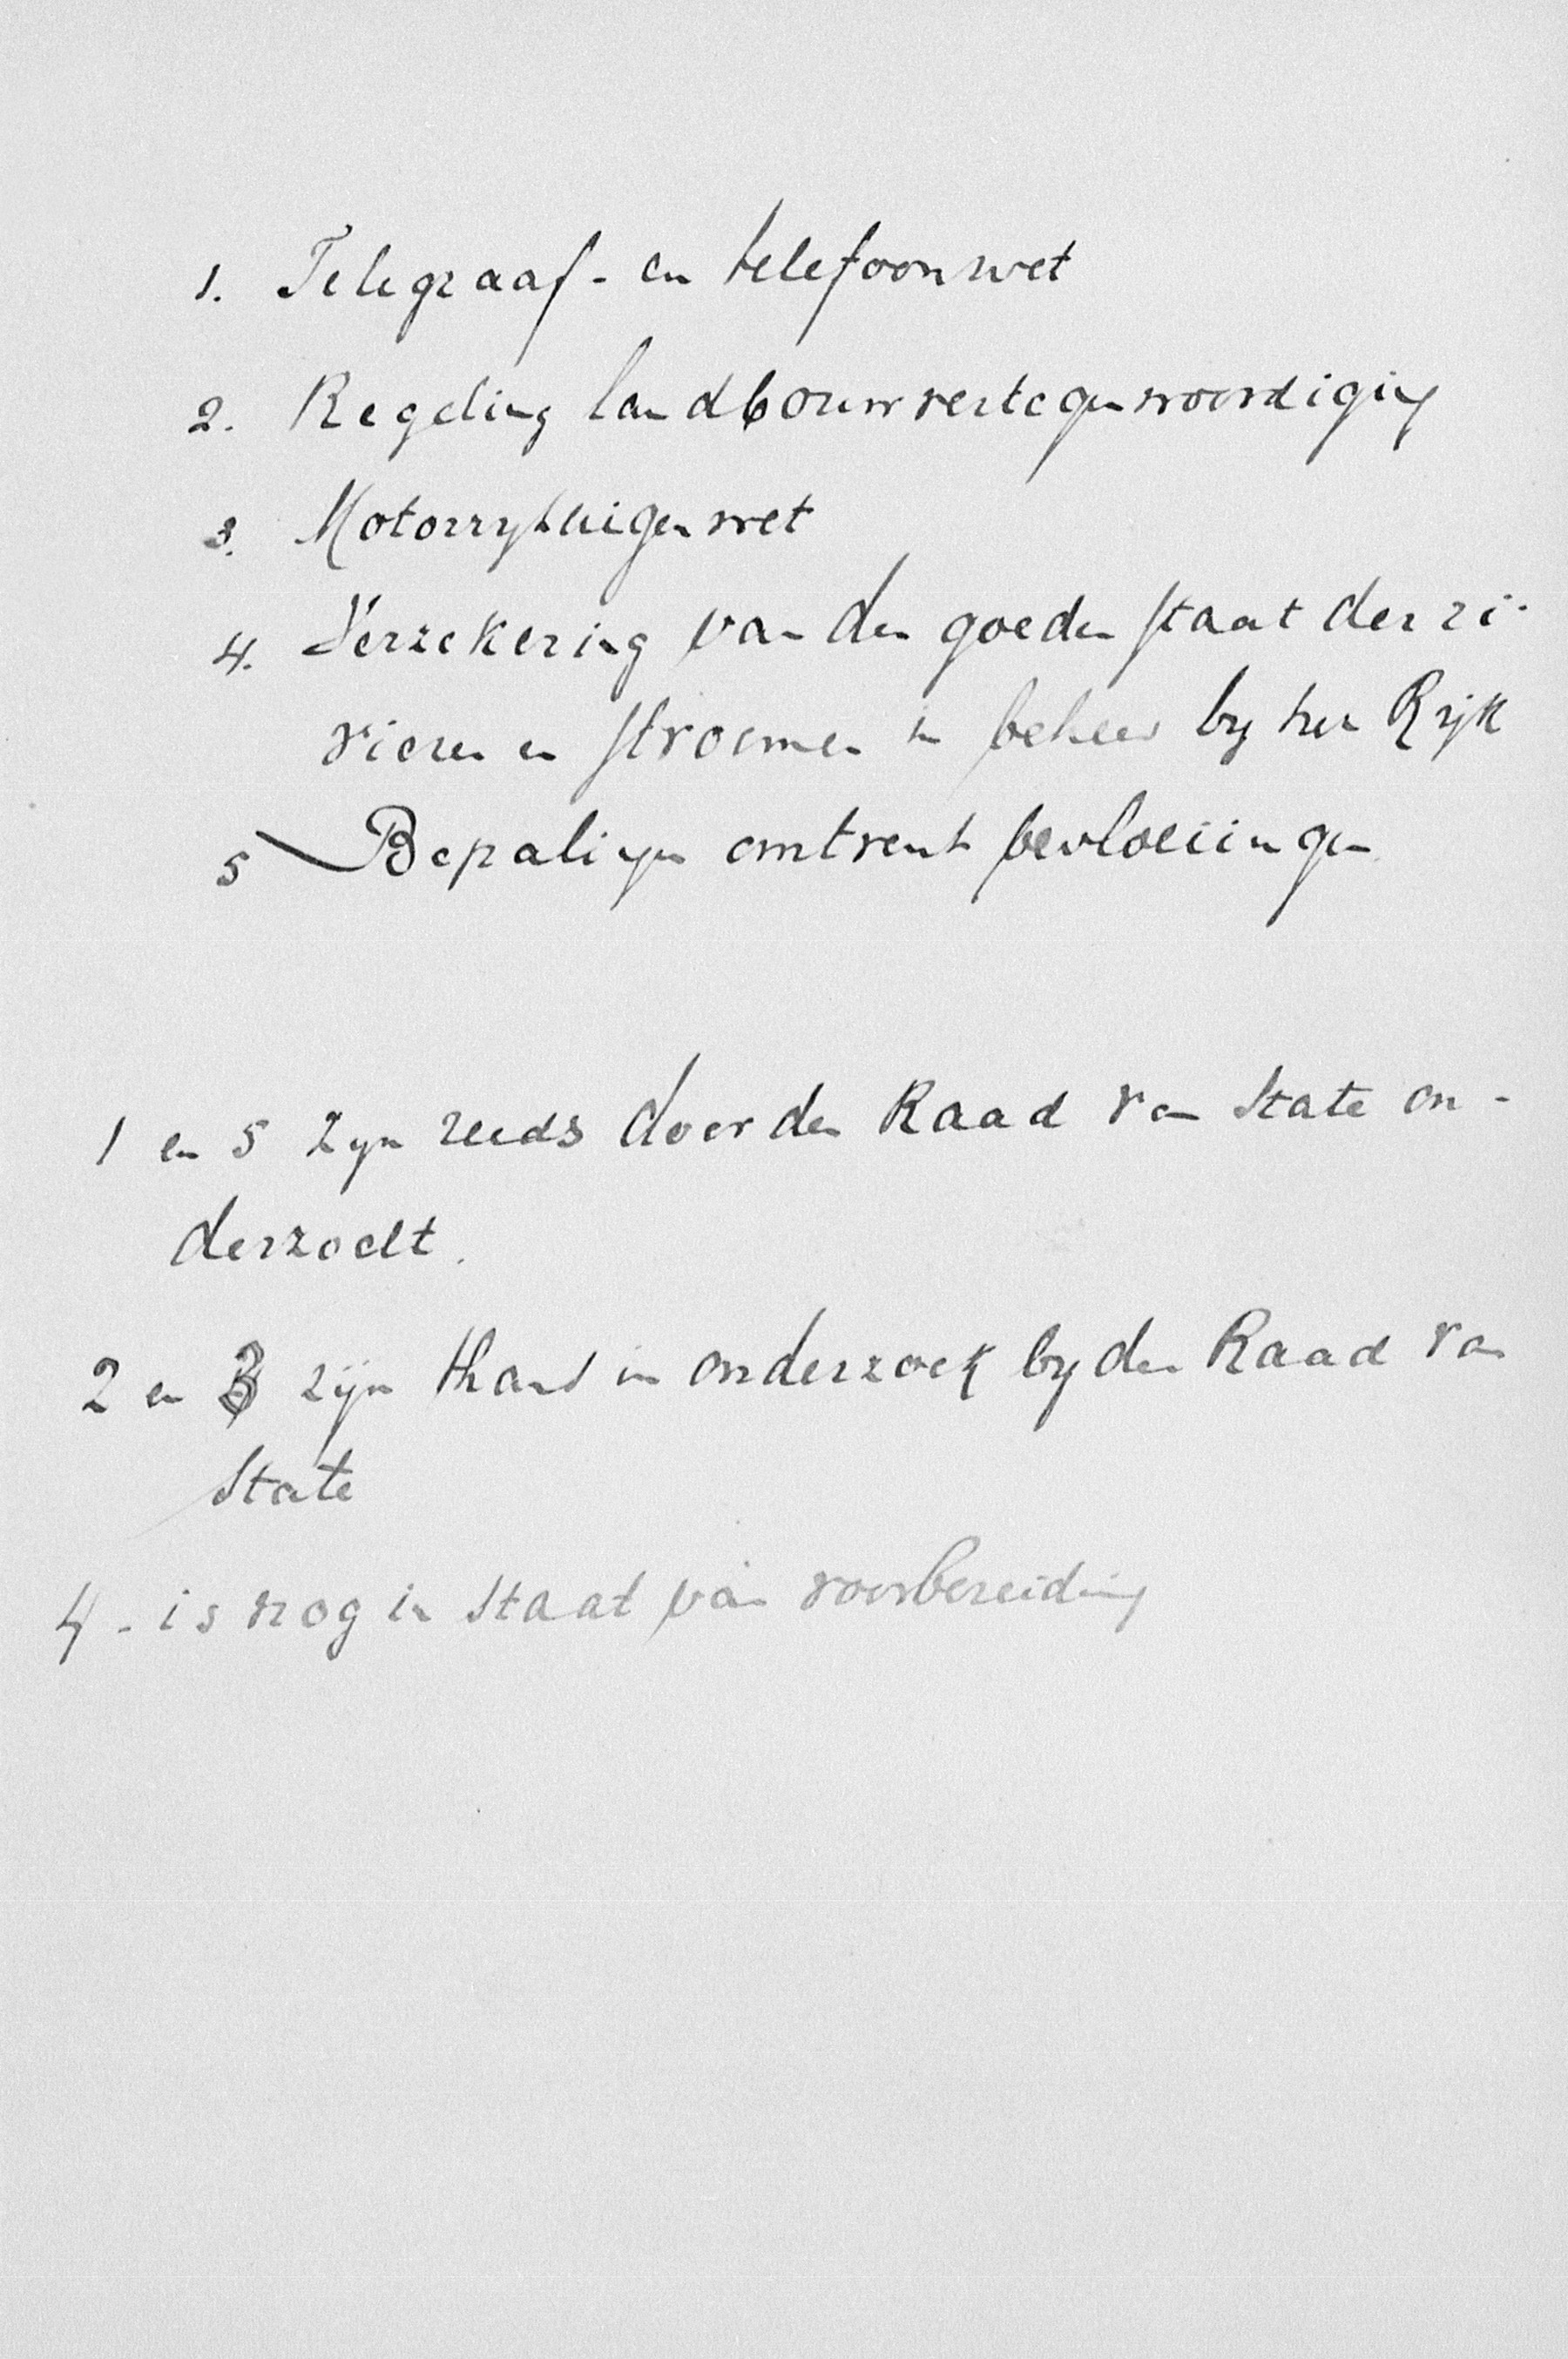 1. Telegraaf- en telefoonwet
2. Regeling landbouwvertegenwoordiging
3. Motorrytuigenwet
4. Verzekering van den goeden staat der ri-
vieren en stroomen in beheer by het Rijk
5 Bepalingen omtrent bevloeiingen
1 en 5 zyn reeds door den Raad van State on-
derzocht.
2 en 3 zijn thans in onderzoek by den Raad van
State
4 - is nog in staat van voorbereiding